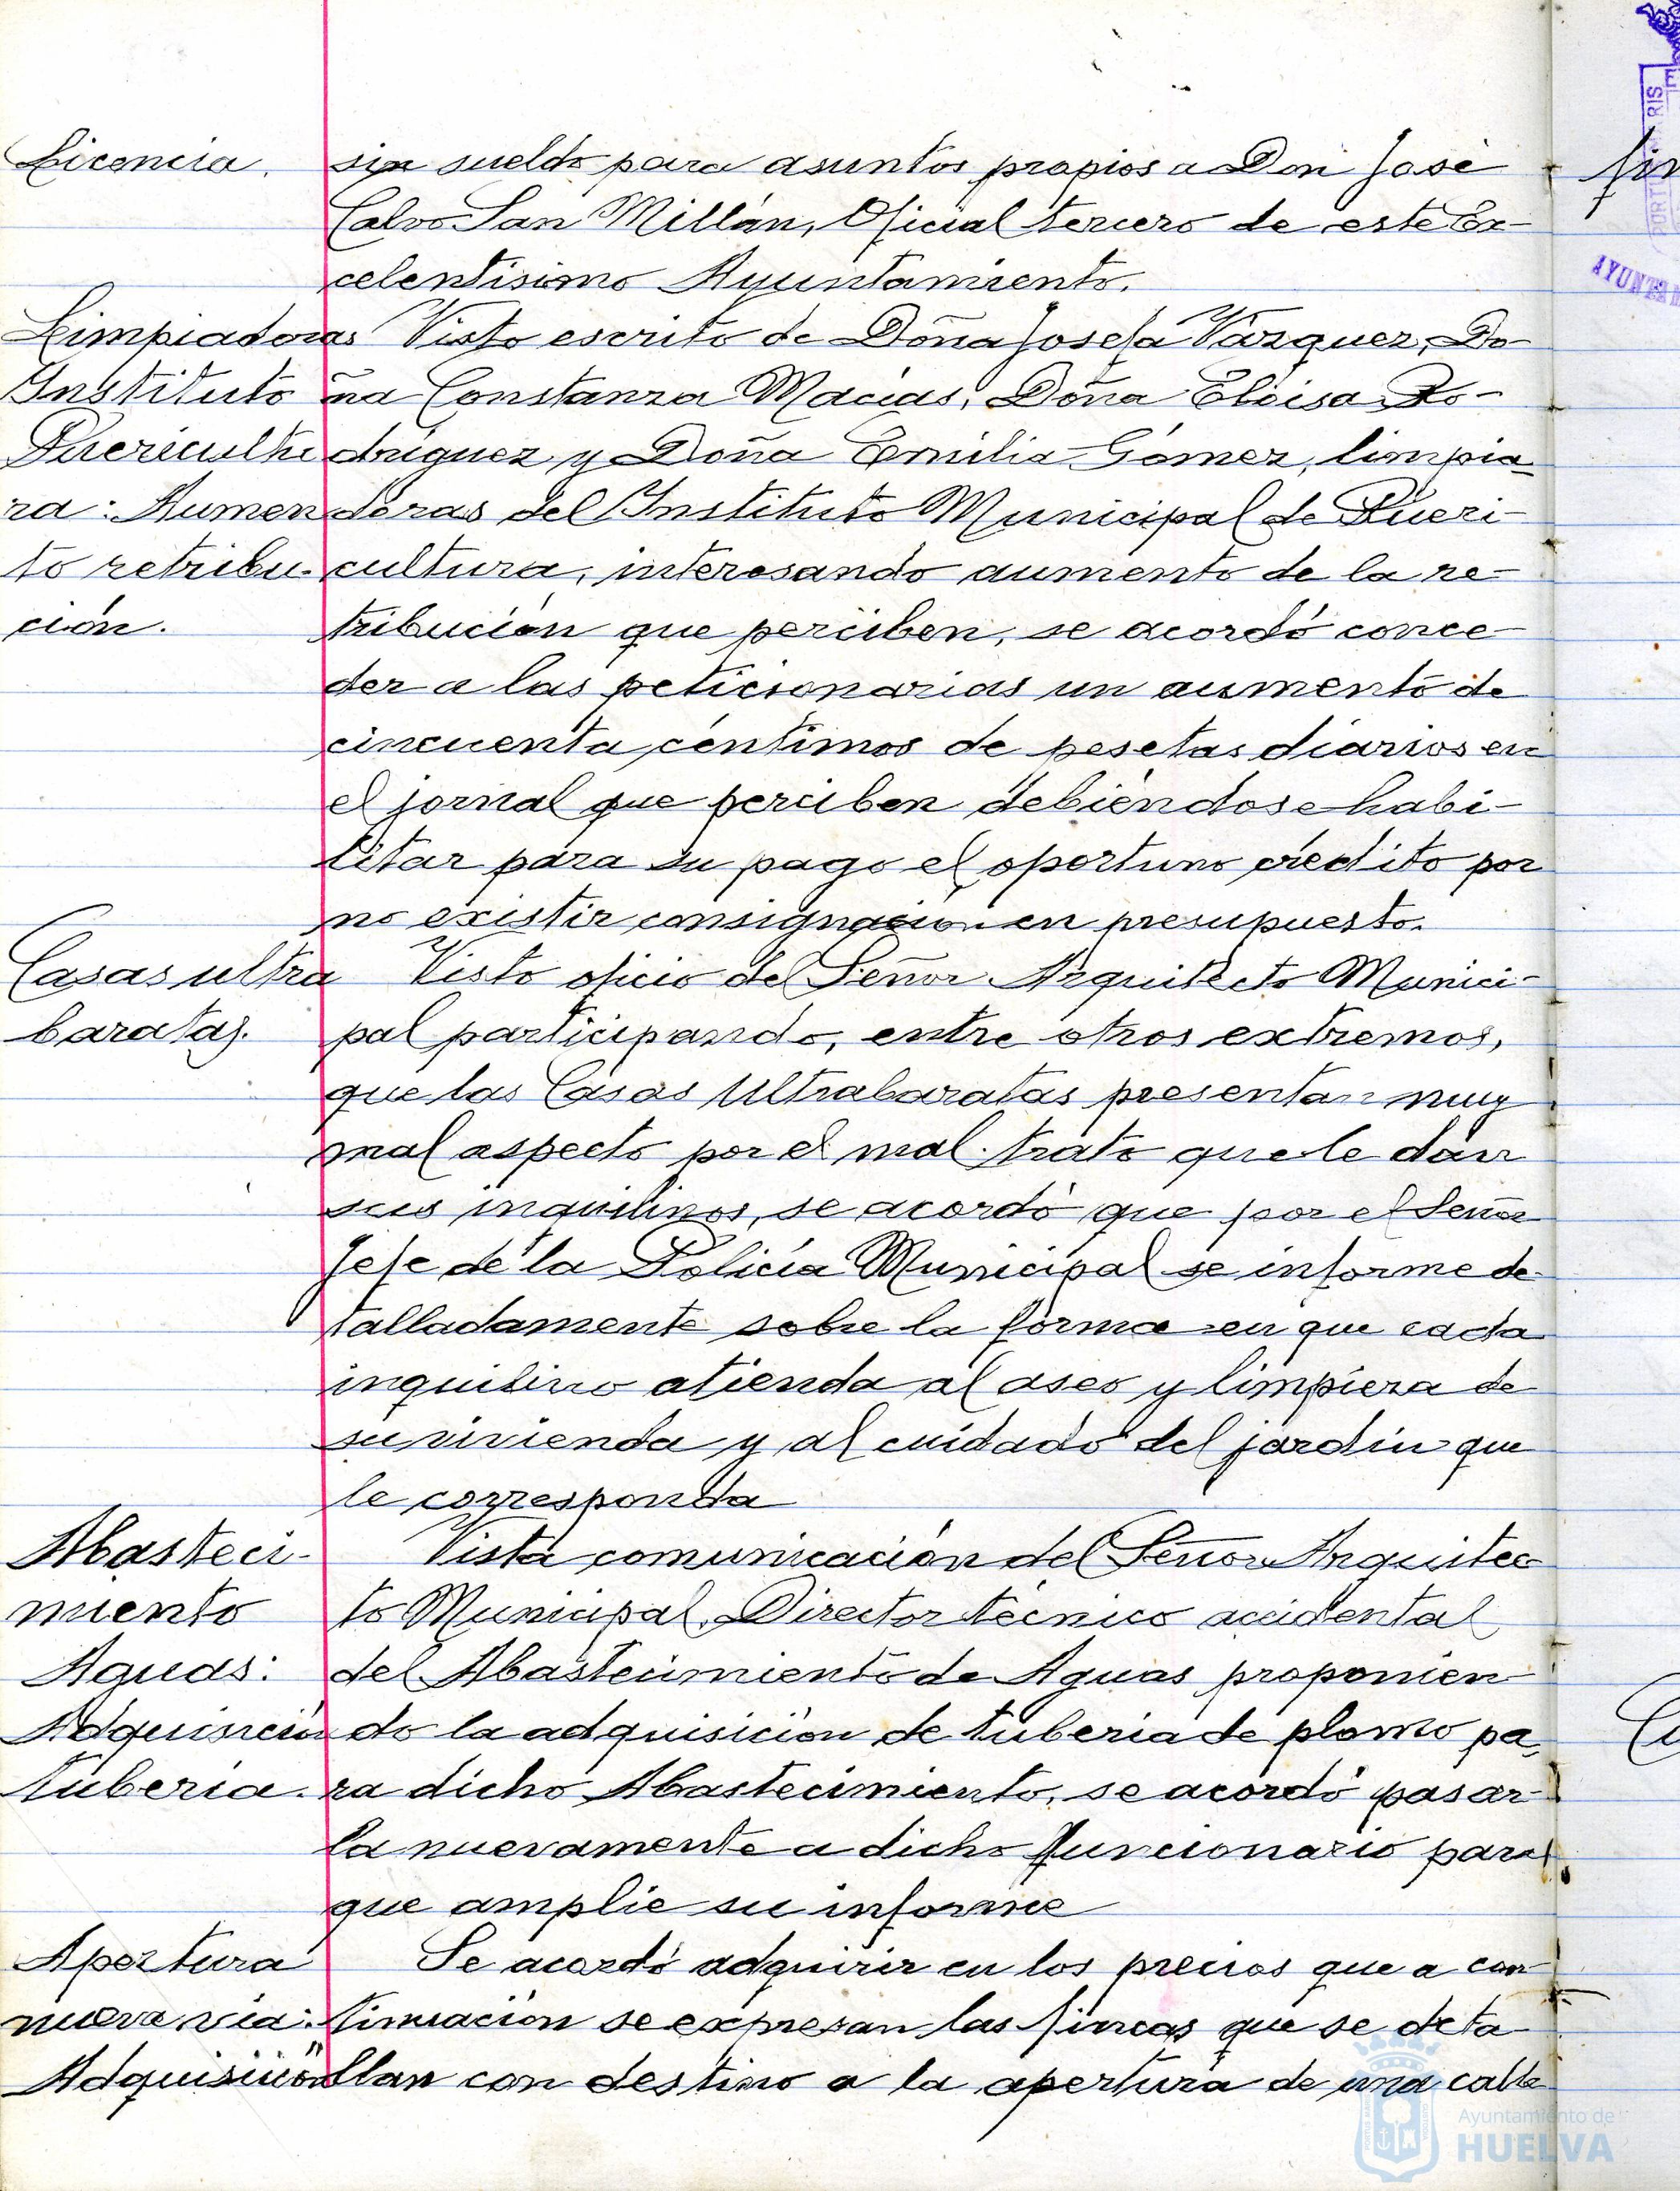 Licencia. sin sueldo para asuntos propios a Don José
Calvo San Millán, Oficial tercero de este Ex-
celentisimo Ayuntamiento.
Limpiadoras Visto escrito de Doña Josefa Vázquez, Do-
Instituto ña Constanza Macías, Doña Eloisa Ro-
Puericultu driguez y Doña Emilia Gómez, limpia
ra: Aumen doras del Instituto Municipal de Pueri-
to retribu- cultura, interesando aumento de la re-
ción. tribución que perciben, se acordó conce-
der a las peticionarias un aumento de
cincuenta céntimos de pesetas diarios en
el jornal que perciben debiéndose habi-
litar para su pago el oportuno crédito por
no existir consignación en presupuesto.
Casas ultra Visto oficio del Señor Arquitecto Munici-
baratas. pal participando, entre otros extremos,
que las Casas Ultrabaratas presentan muy
mal aspecto por el mal trato que le dan
sus inquilinos, se acordó que por el Señor
Jefe de la Policía Municipal se informe de-
talladamente sobre la forma en que cada
inquilino atienda al aseo y limpieza de
su vivienda y al cuidado del jardín que
le corresponda
Abasteci- Vista comunicación del Señor Arquitec
miento to Municipal, Director técnico accidental
Aguas: del Abastecimiento de Aguas proponien
Adquisición do la adquisición de tubería de plomo pa-
tubería. ra dicho Abastecimiento, se acordó pasar-
la nuevamente a dicho funcionario para
que amplie su informe
Apertura Se acordó adquirir en los precios que a con
nueva vía: tinuación se expresan las fincas que se deta
Adquisición llan con destino a la apertura de una calle
AYUNTAM
Ayuntamiento de
HUELVA